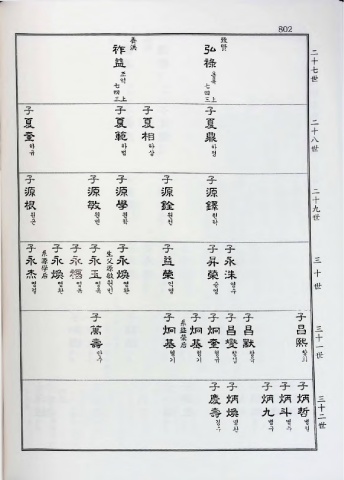 802
二十七世
致賢
弘祿 홍록
七四三上
善洪
祚益 조익
七四三上
二十八世
子夏鼎 하정
子夏相 하상
子夏範 하범
子夏奎 하규
二十九世
子源鐸 원탁
子源銓 원전
子源學 원학
子源敏 원민
子源根 원근
三十世
子永洙 영수
子昇榮 승영
子益榮 익영
子永煥 영환
子永玉 영옥
生父源敏
子永煥 영환
系源學后
子永杰 영걸
三十一世
子昌熙 창희
子昌默 창묵
子昌燮 창섭
子炯奎 형규
子炯基 형기
系益榮后
子炯基 형기
子萬壽 만수
三十二世
子炳哲 병철
子炳斗 병두
子炳九 병구
子炳煥 병환
子慶壽 경수